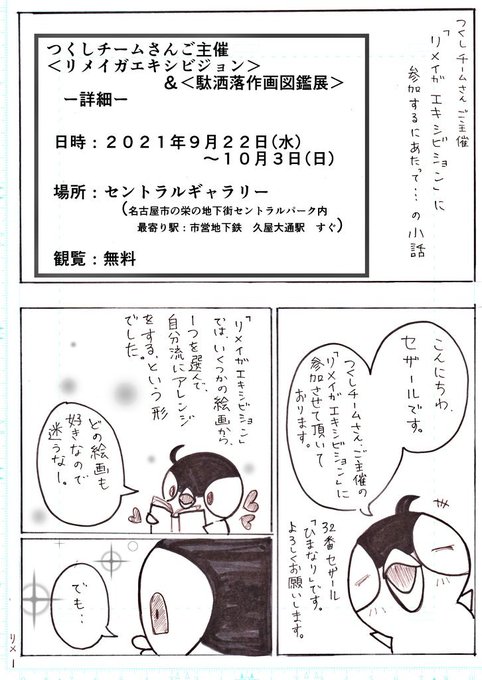 つくしチームさんご主催
「リメイガエキシビジョン」に
参加するにあたって…の小話
つくしチームさんご主催
<リメイガエキシビジョン>
＆<駄洒落作画図鑑展>
ー詳細ー
日時：２０２１年９月２２日(水)
～１０月３日(日)
場所：セントラルギャラリー
(名古屋市の栄の地下街セントラルパーク内
最寄り駅：市営地下鉄　久屋大通駅　すぐ)
観覧：無料
こんにちわ、
セザールです。
つくしチームさん、ご主催の
「リメイガエキシビジョン」に
参加させて頂いて
おります。
32番セザール
「ひまなり」です。
よろしくお願いします。
「リメイガエキシビジョン」
では、いくつかの絵画から、
1つを選んで、
自分流にアレンジ
をする、という形
でした。
どの絵画も
好きなので
迷うなー。
でも…
リメ1